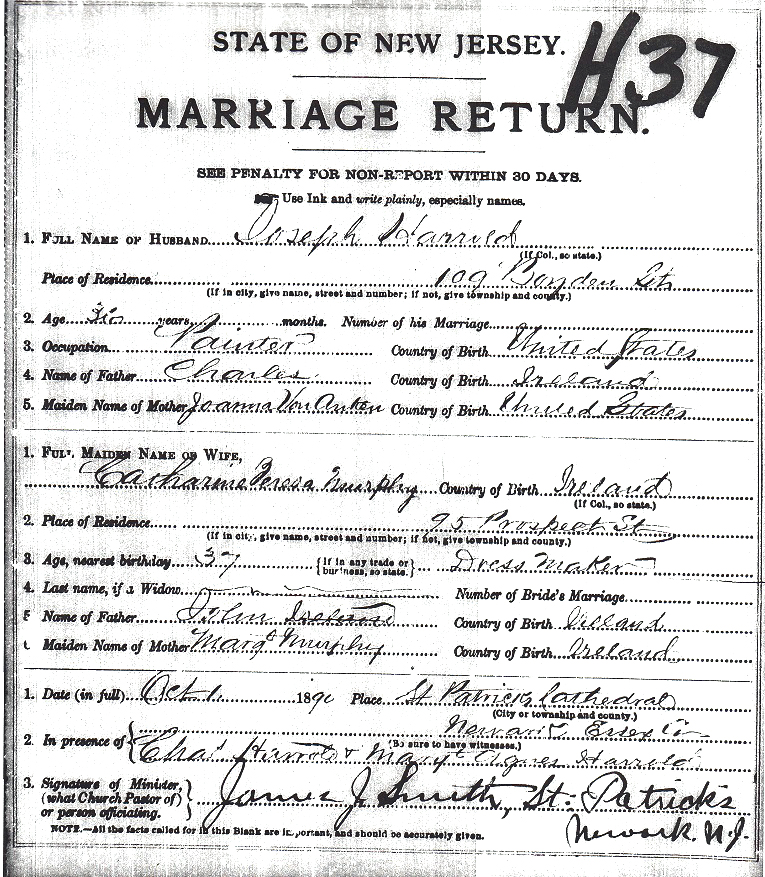 STATE OF NEW JERSEY.
H37
MARRIAGE RETURN.
SEE PENALTY FOR NON-REPORT WITHIN 30 DAYS.
Use Ink and write plainly, especially names.
1. FULL NAME OF HUSBAND Joseph Harrild
(If Col., so state.)
Place of Residence 109 Boyden
(If in city, give name, street and number; if not, give township and county.)
2. Age years, months. Number of his Marriage
3. Occupation Painter Country of Birth United States
4. Name of Father Charles Country of Birth Ireland
5. Maiden Name of Mother Joanna Von Country of Birth United States
1. FULL MAIDEN NAME OF WIFE,
Catharine Teresa Murphy Country of Birth Ireland
(If Col., so state.)
2. Place of Residence 95 Prospect St
(If in city, give name, street and number; if not, give township and county.)
3. Age, nearest birthday 37 {If in any trade or business, so state.} Dress Maker
4. Last name, if a Widow Number of Bride's Marriage
5 Name of Father John Ireland Country of Birth Ireland
Maiden Name of Mother Margt Murphy Country of Birth Ireland
1. Date (in full) Oct 1. 189 Place St Patricks Cathedral
(City or township and county.)
Newark Essex Co
2. In presence of { (Be sure to have witnesses.)
Chas Harrold & Mary Agnes Harrild
3. Signature of Minister, (what Church Pastor of) or person officiating. } James J Smith, St. Patrick's
Newark. N.J.
NOTE.—All the facts called for in this Blank are important, and should be accurately given.